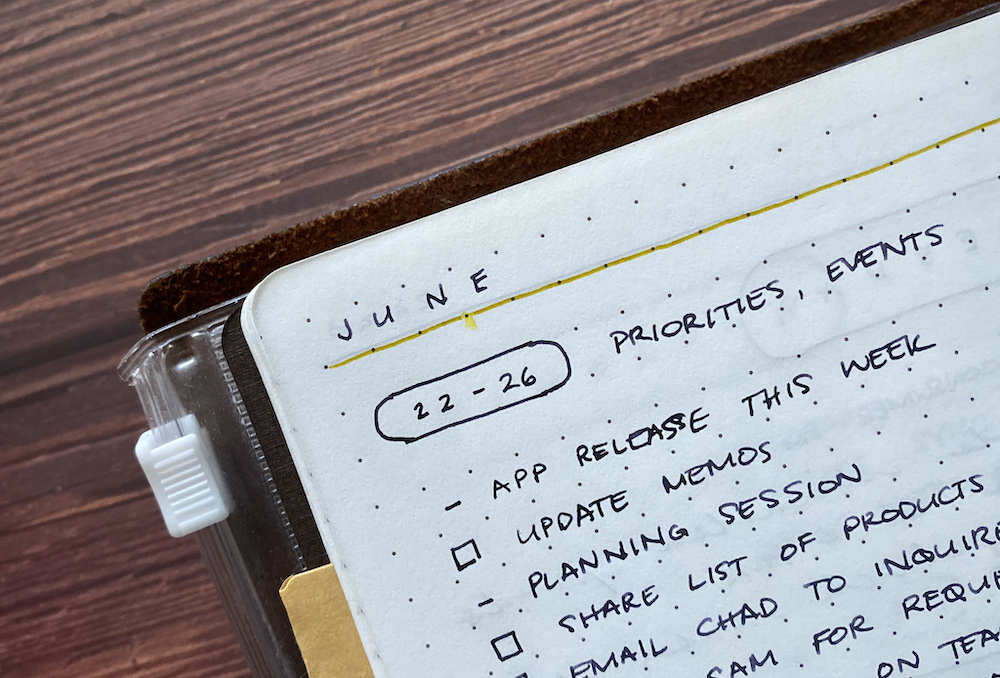 JUNE
22-26 PRIORITIES, EVENTS
- APP RELEASE THIS WEEK
□ UPDATE MEMOS
- PLANNING SESSION
□ SHARE LIST OF PRODUCTS
EMAIL CHAD TO INQUIRE
SAM FOR
ON